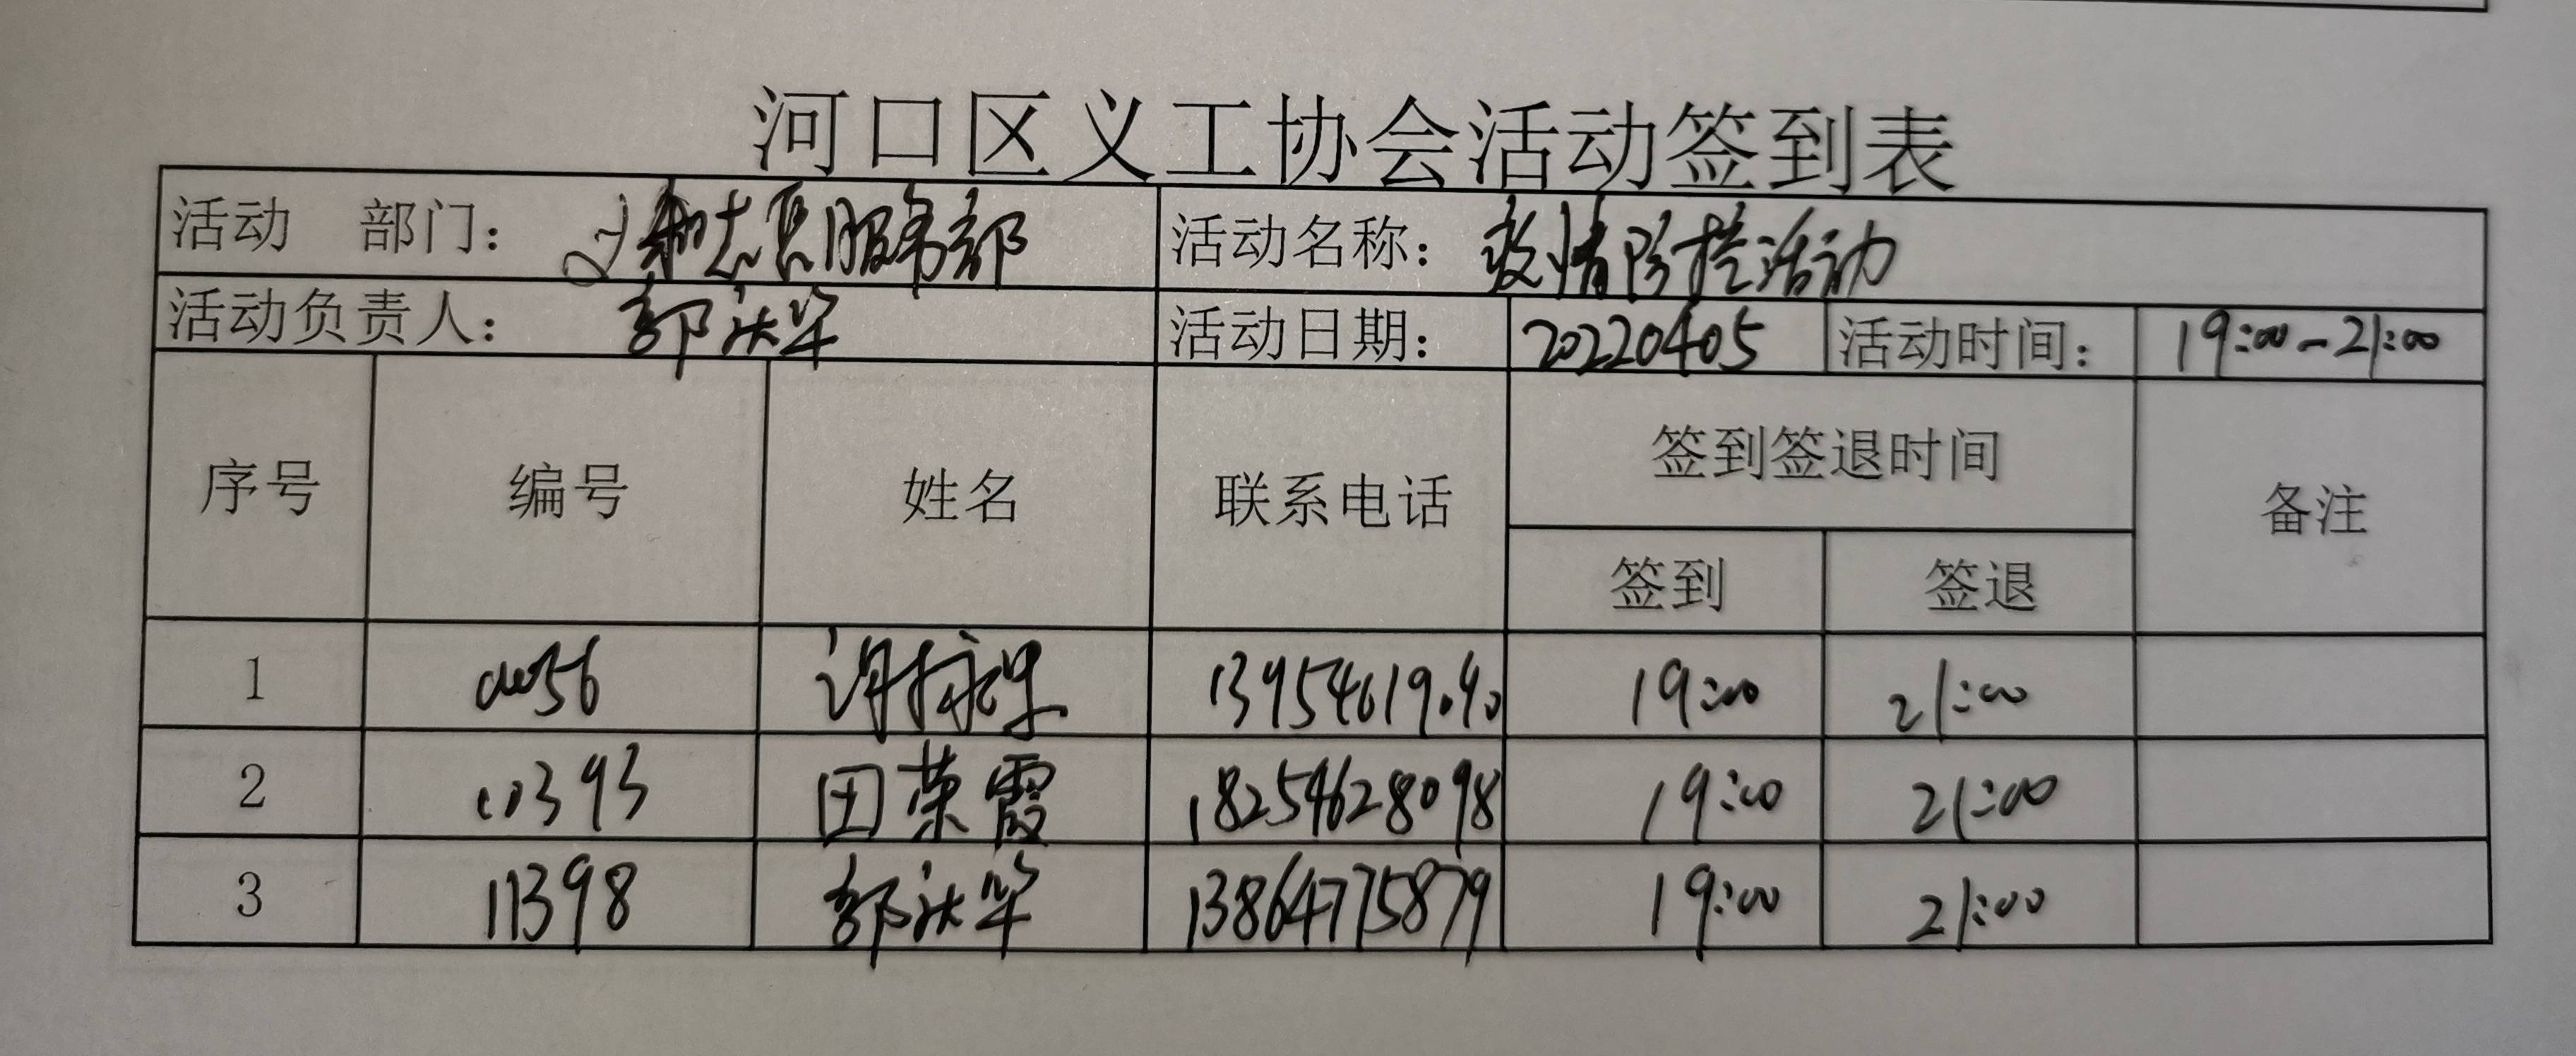 河口区义工协会活动签到表
活动 部门： 志愿服务部 活动名称： 疫情防控活动
活动负责人： 郭 活动日期： 20220405 活动时间： 19:00-21:00
序号 编号 姓名 联系电话 签到签退时间 备注
签到 签退
1 谢 19:00 21:00
2 11393 田荣霞 18254628098 19:00 21:00
3 11398 郭 13864775879 19:00 21:00